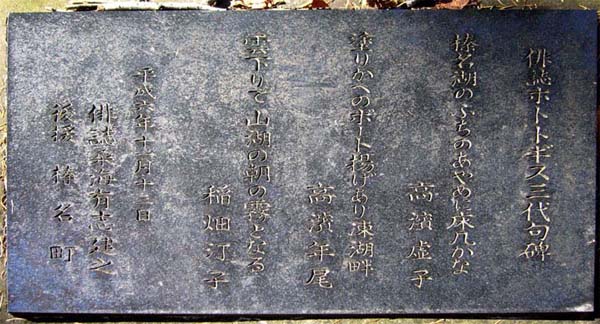 俳誌ホトトギス三代句碑
榛名湖のふちのあやめに床几かな
高濱虚子
塗りかへのボート揚げあり凍湖畔
高濱年尾
雲下りて山湖の朝の霧となる
稲畑汀子
平成六年十一月十三日
俳誌桑海有志建之
後援 榛名町